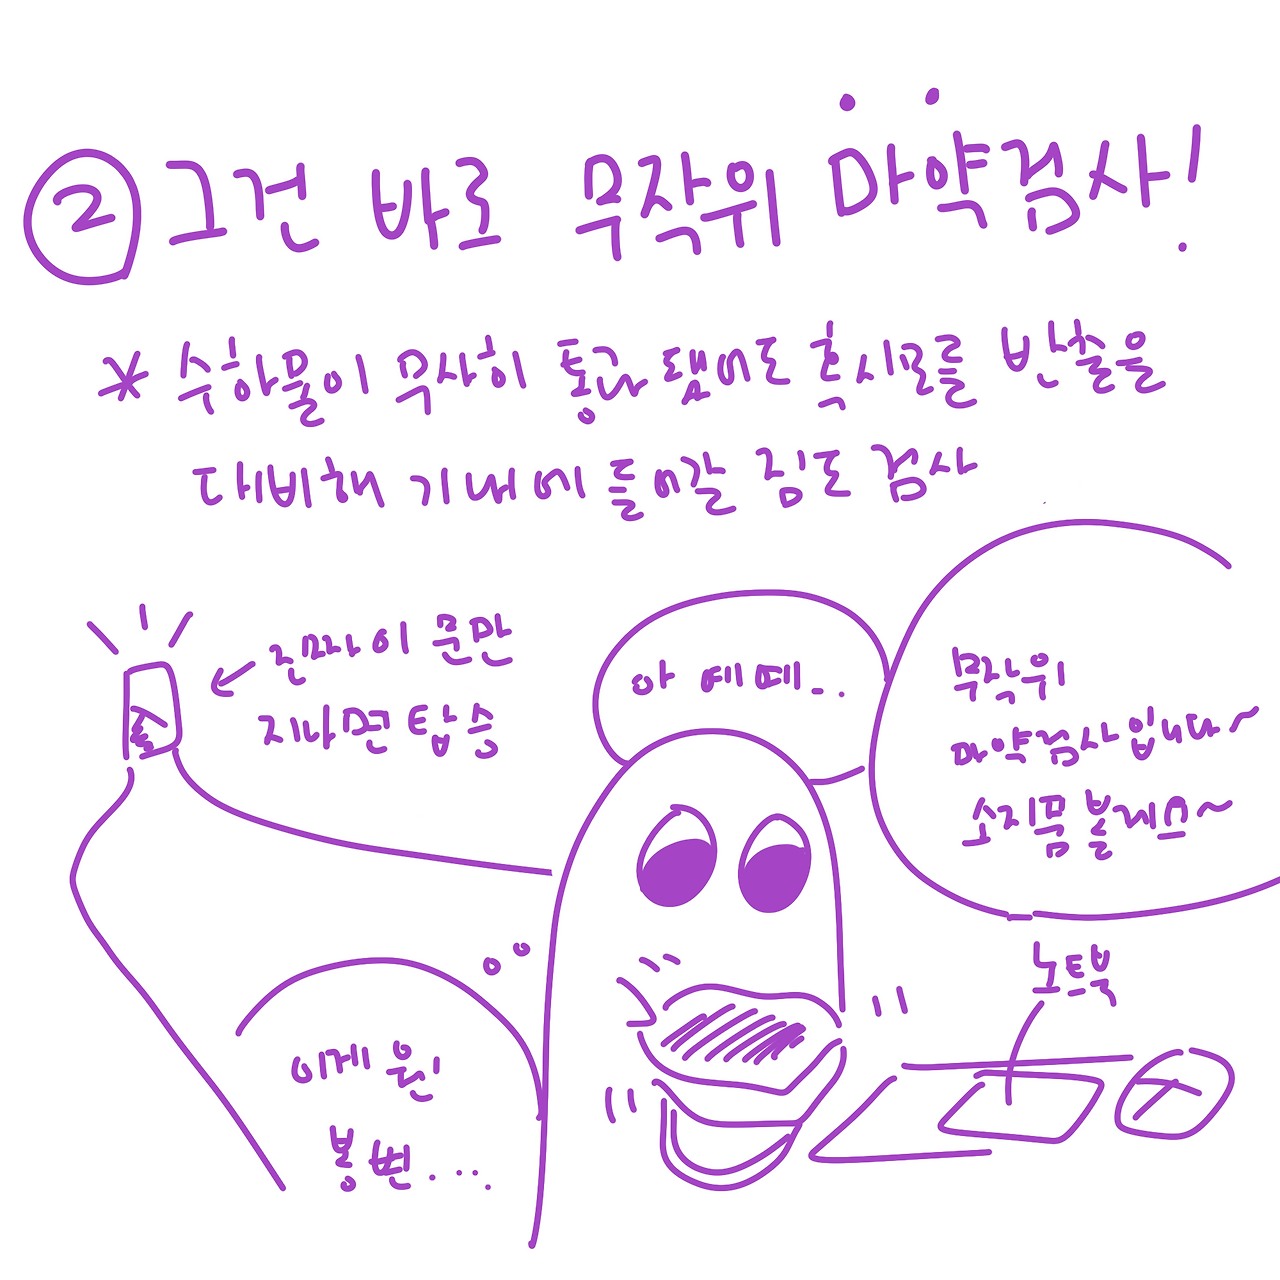 ② 그건 바로 무작위 마약검사!
* 수하물이 무사히 통과 됐어도 혹시모를 반출을
대비해 기내에 들어갈 짐도 검사
진짜 이 문만
지나면 탑승
아 예예..
무작위
마약검사입니다~
소지품 볼게요~
노트북
이게 웬
봉변...